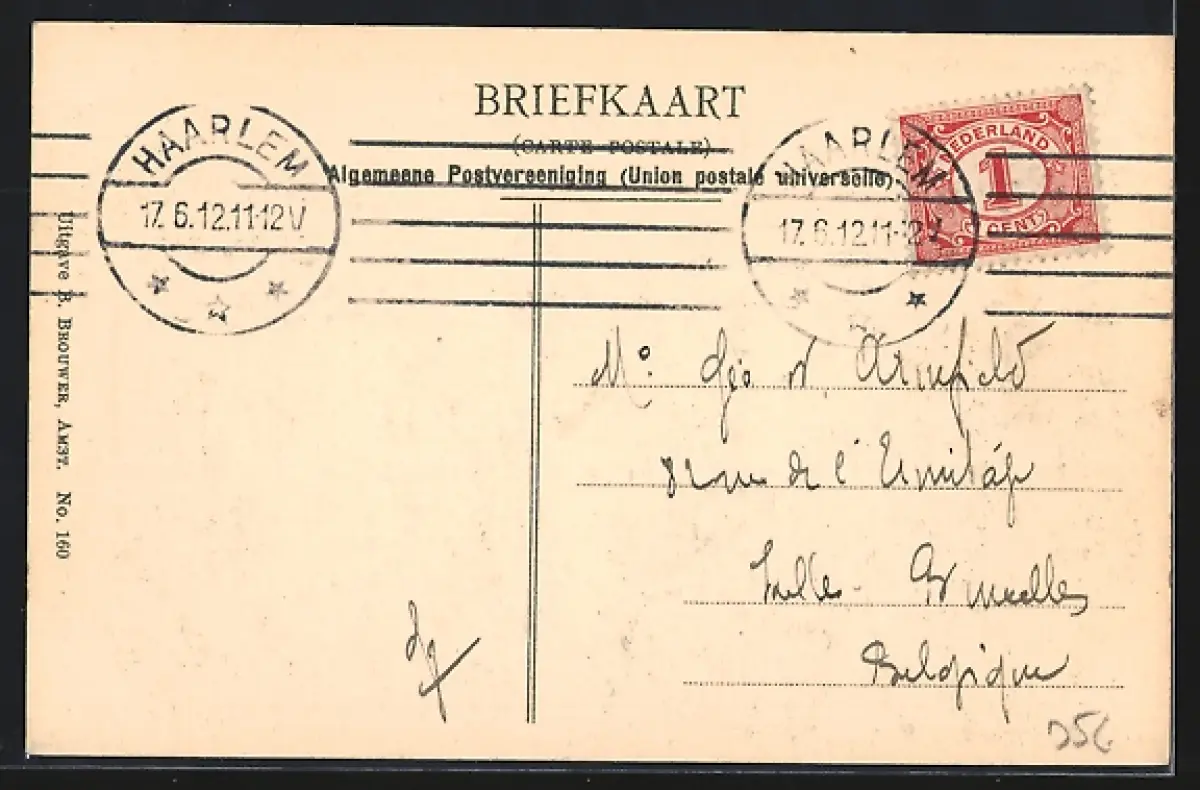 BRIEFKAART
(CARTE POSTALE)
Algemeene Postvereeniging (Union postale universelle)
HAARLEM
17.6.12.11-12V
HAARLEM
17.6.12.11-12V
NEDERLAND
1
CENT
Uitgave B. BROUWER, AMST. No. 160
Mr. Armfield
rue de l'
Bruxelles
Belgique